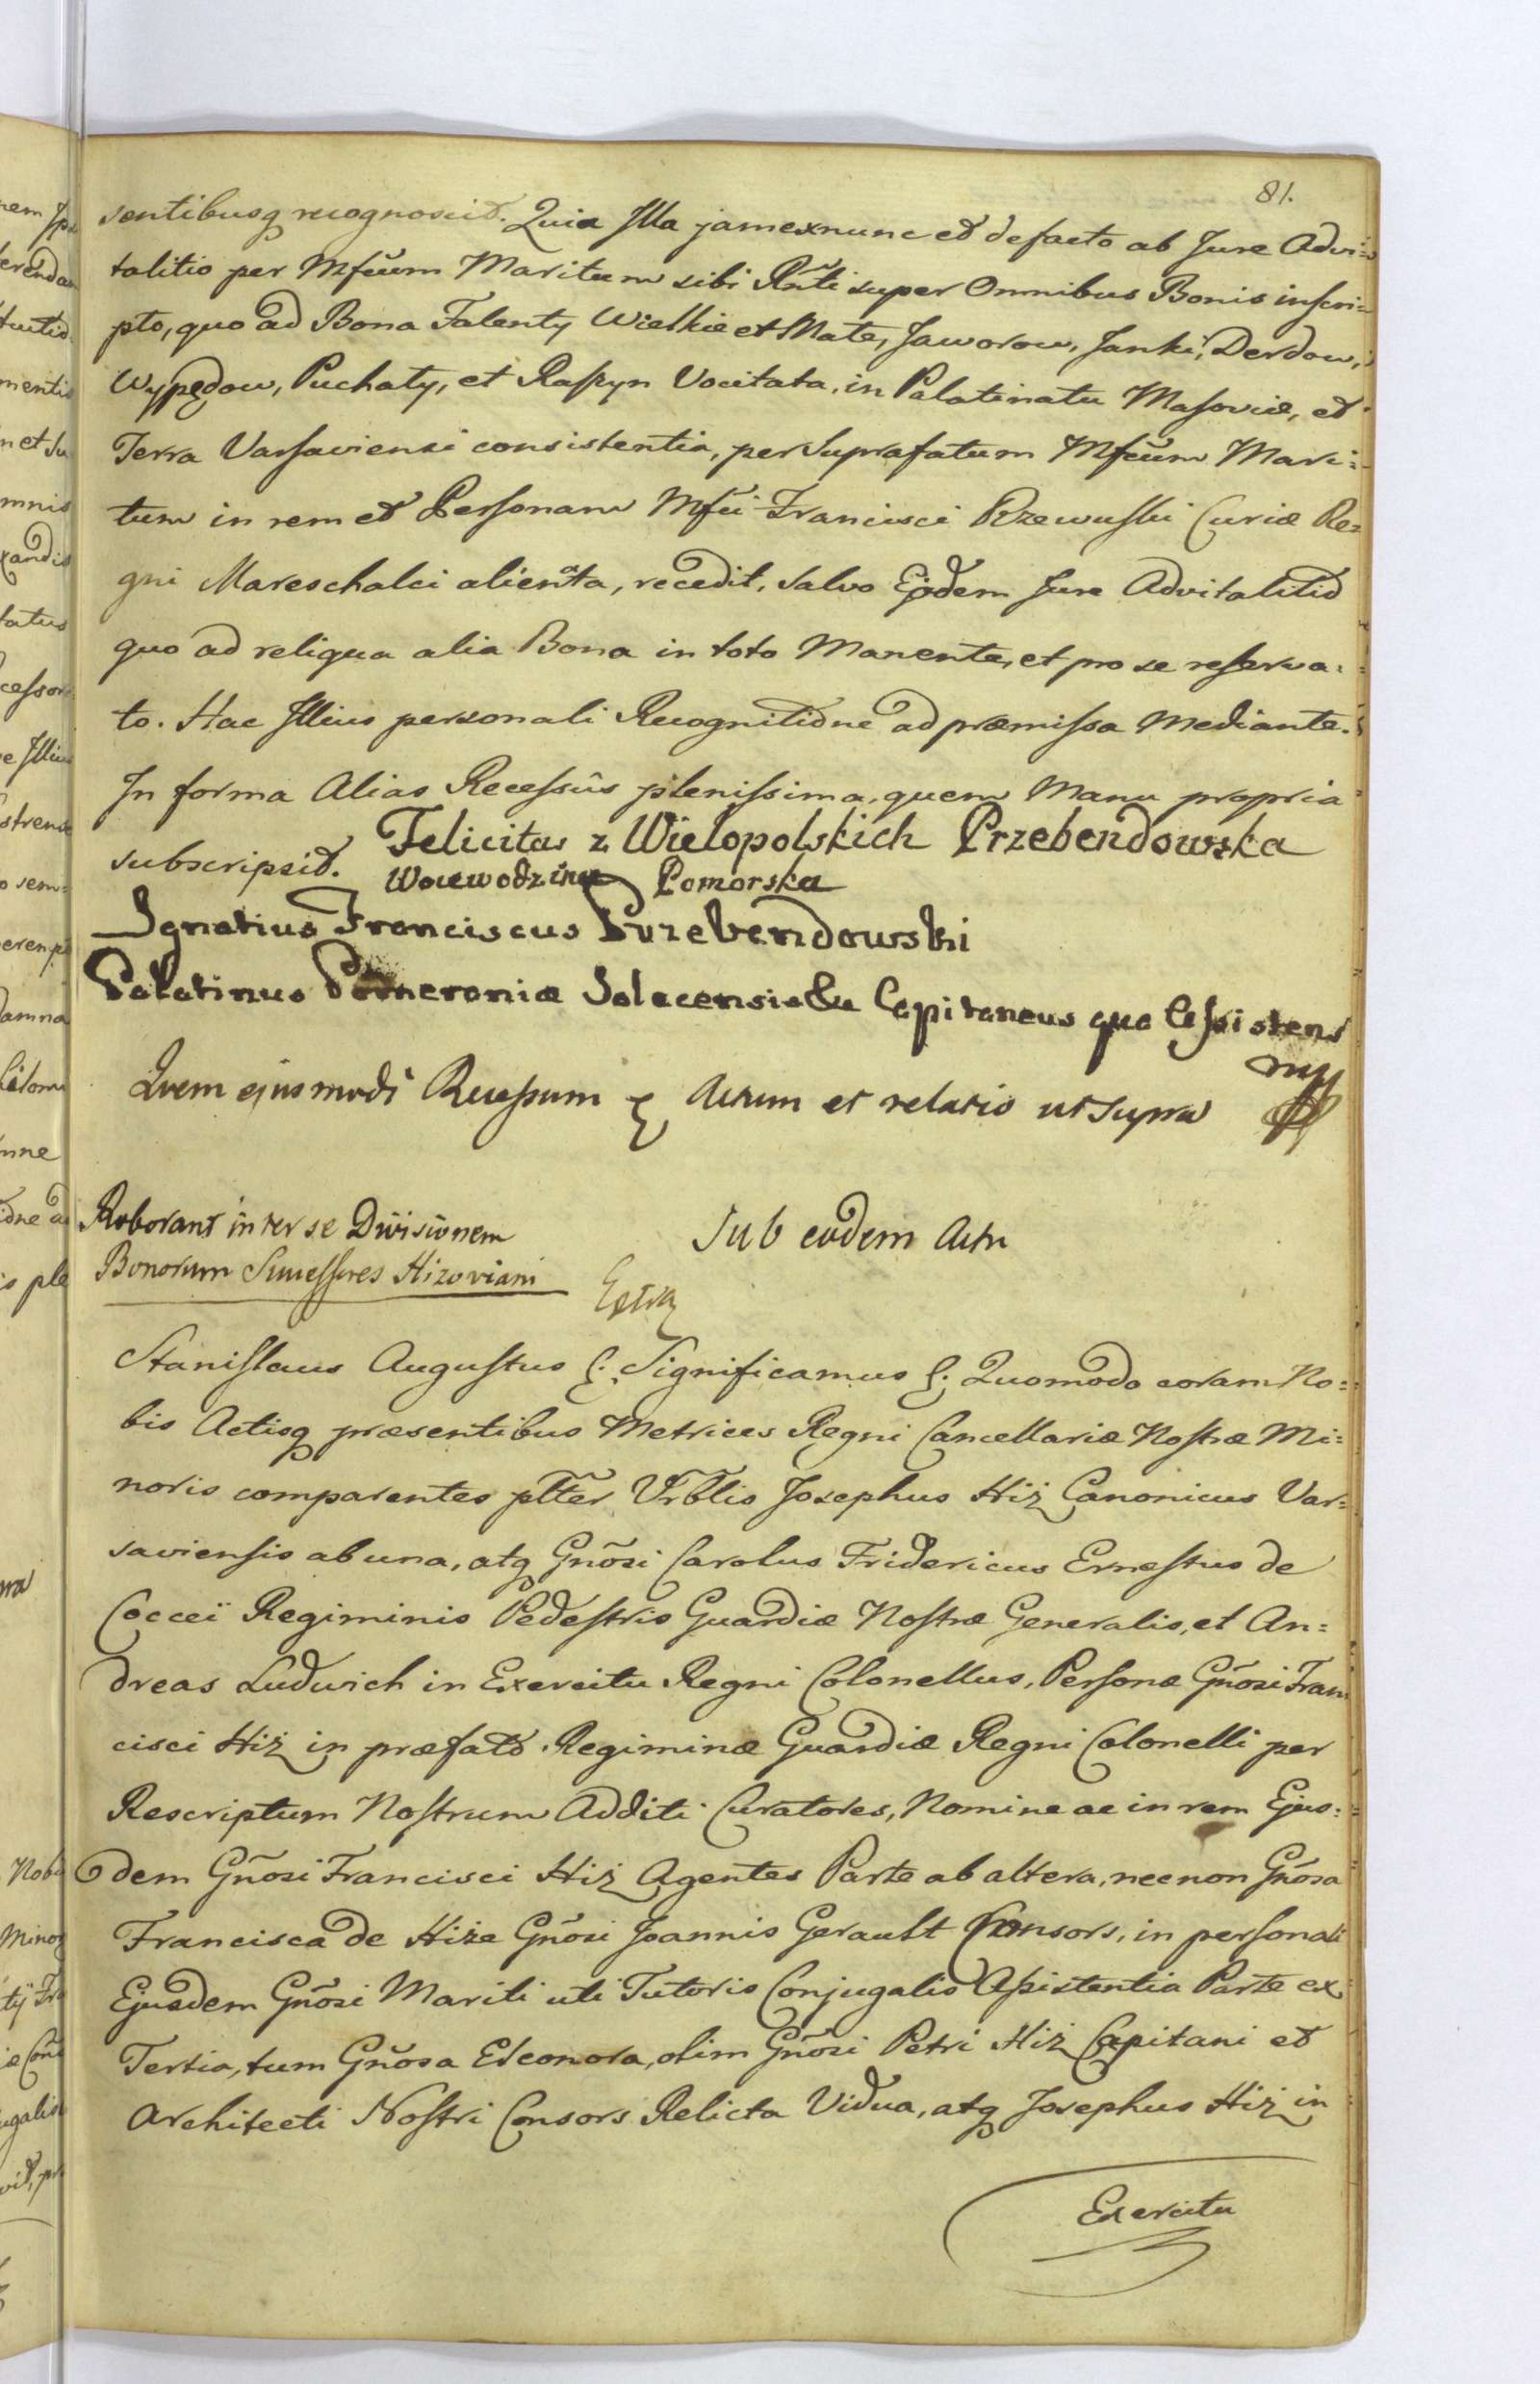 81.
sentibusq recognoscit. Quia Illa jamexnunc et defacto ab Jure Advi=
talitio per Mfcũm Maritum sibi Rñti super Omnibus Bonis inscri=
pto, quo ad Bona Falenty Wielkie et Małe, Jaworow, Janki, Derdow,
Wypędow, Puchaty, et Raszyn Vocitata, in Palatinatu Masoviæ, et
Terra Varsaviensi consistentia, per Suprafatum Mfcũm Mari=
tum in rem et Personam Mfci Francisci Rzewuski Curiæ Re=
gni Mareschalci alienata, recedit, salvo Ejodem Jure Advitalitio
quo ad reliqua alia Bona in toto Manente, et pro se reserva=
to. Hac Illius personali Recognitione ad præmissa Mediante.
In forma Alias Recessûs plenissima, quem Manu propria
subscripsit. Felicitas z Wielopolskich Przebendowska
Woiewodzina Pomorska
Ignatius Franciscus Przebendowski
Palatinus Pomeroniæ Solecensisdu Capitaneus qua Assistens
mp
Quem ejusmodi Recessum Actum et relatio ut supra
Roborant inter se Divisionem
Bonorum Successores Hizoviani
Sub eodem Actu
Extra
Stanislaus Augustus &. Significamus &. Quomodo coram No=
bis Actisq præsentibus Metrices Regni Cancellariæ Nostræ Mi=
noris comparentes pltẽr Vrblis Josephus Hiż Canonicus Var=
saviensis ab una, atq Gnõsi Carolus Fridericus Ernestus de
Cocceï Regiminis Pedestris Guardiæ Nostræ Generalis, et An=
dreas Ludwich in Exercitu Regni Colonellus, Personæ Gnõsi Fran
cisci Hiż in præfato Regiminæ Guardiæ Regni Colonelli per
Rescriptum Nostrum Additi Curatores, Nomine ac in rem Ejus=
dem Gnõsi Francisci Hiż Agentes Parte ab altera, necnon Gnõsa
Francisca de Hiże Gnõsi Joannis Gerault Consors, in personali
Ejusdem Gnõsi Mariti uti Tutoris Conjugalis Assistentia Parte ex
Tertia, tum Gnõsa Eleonora, olim Gnõsi Petri Hiż Capitani et
Architecti Nostri Consors Relicta Vidua, atq Josephus Hiż in
Exercitu